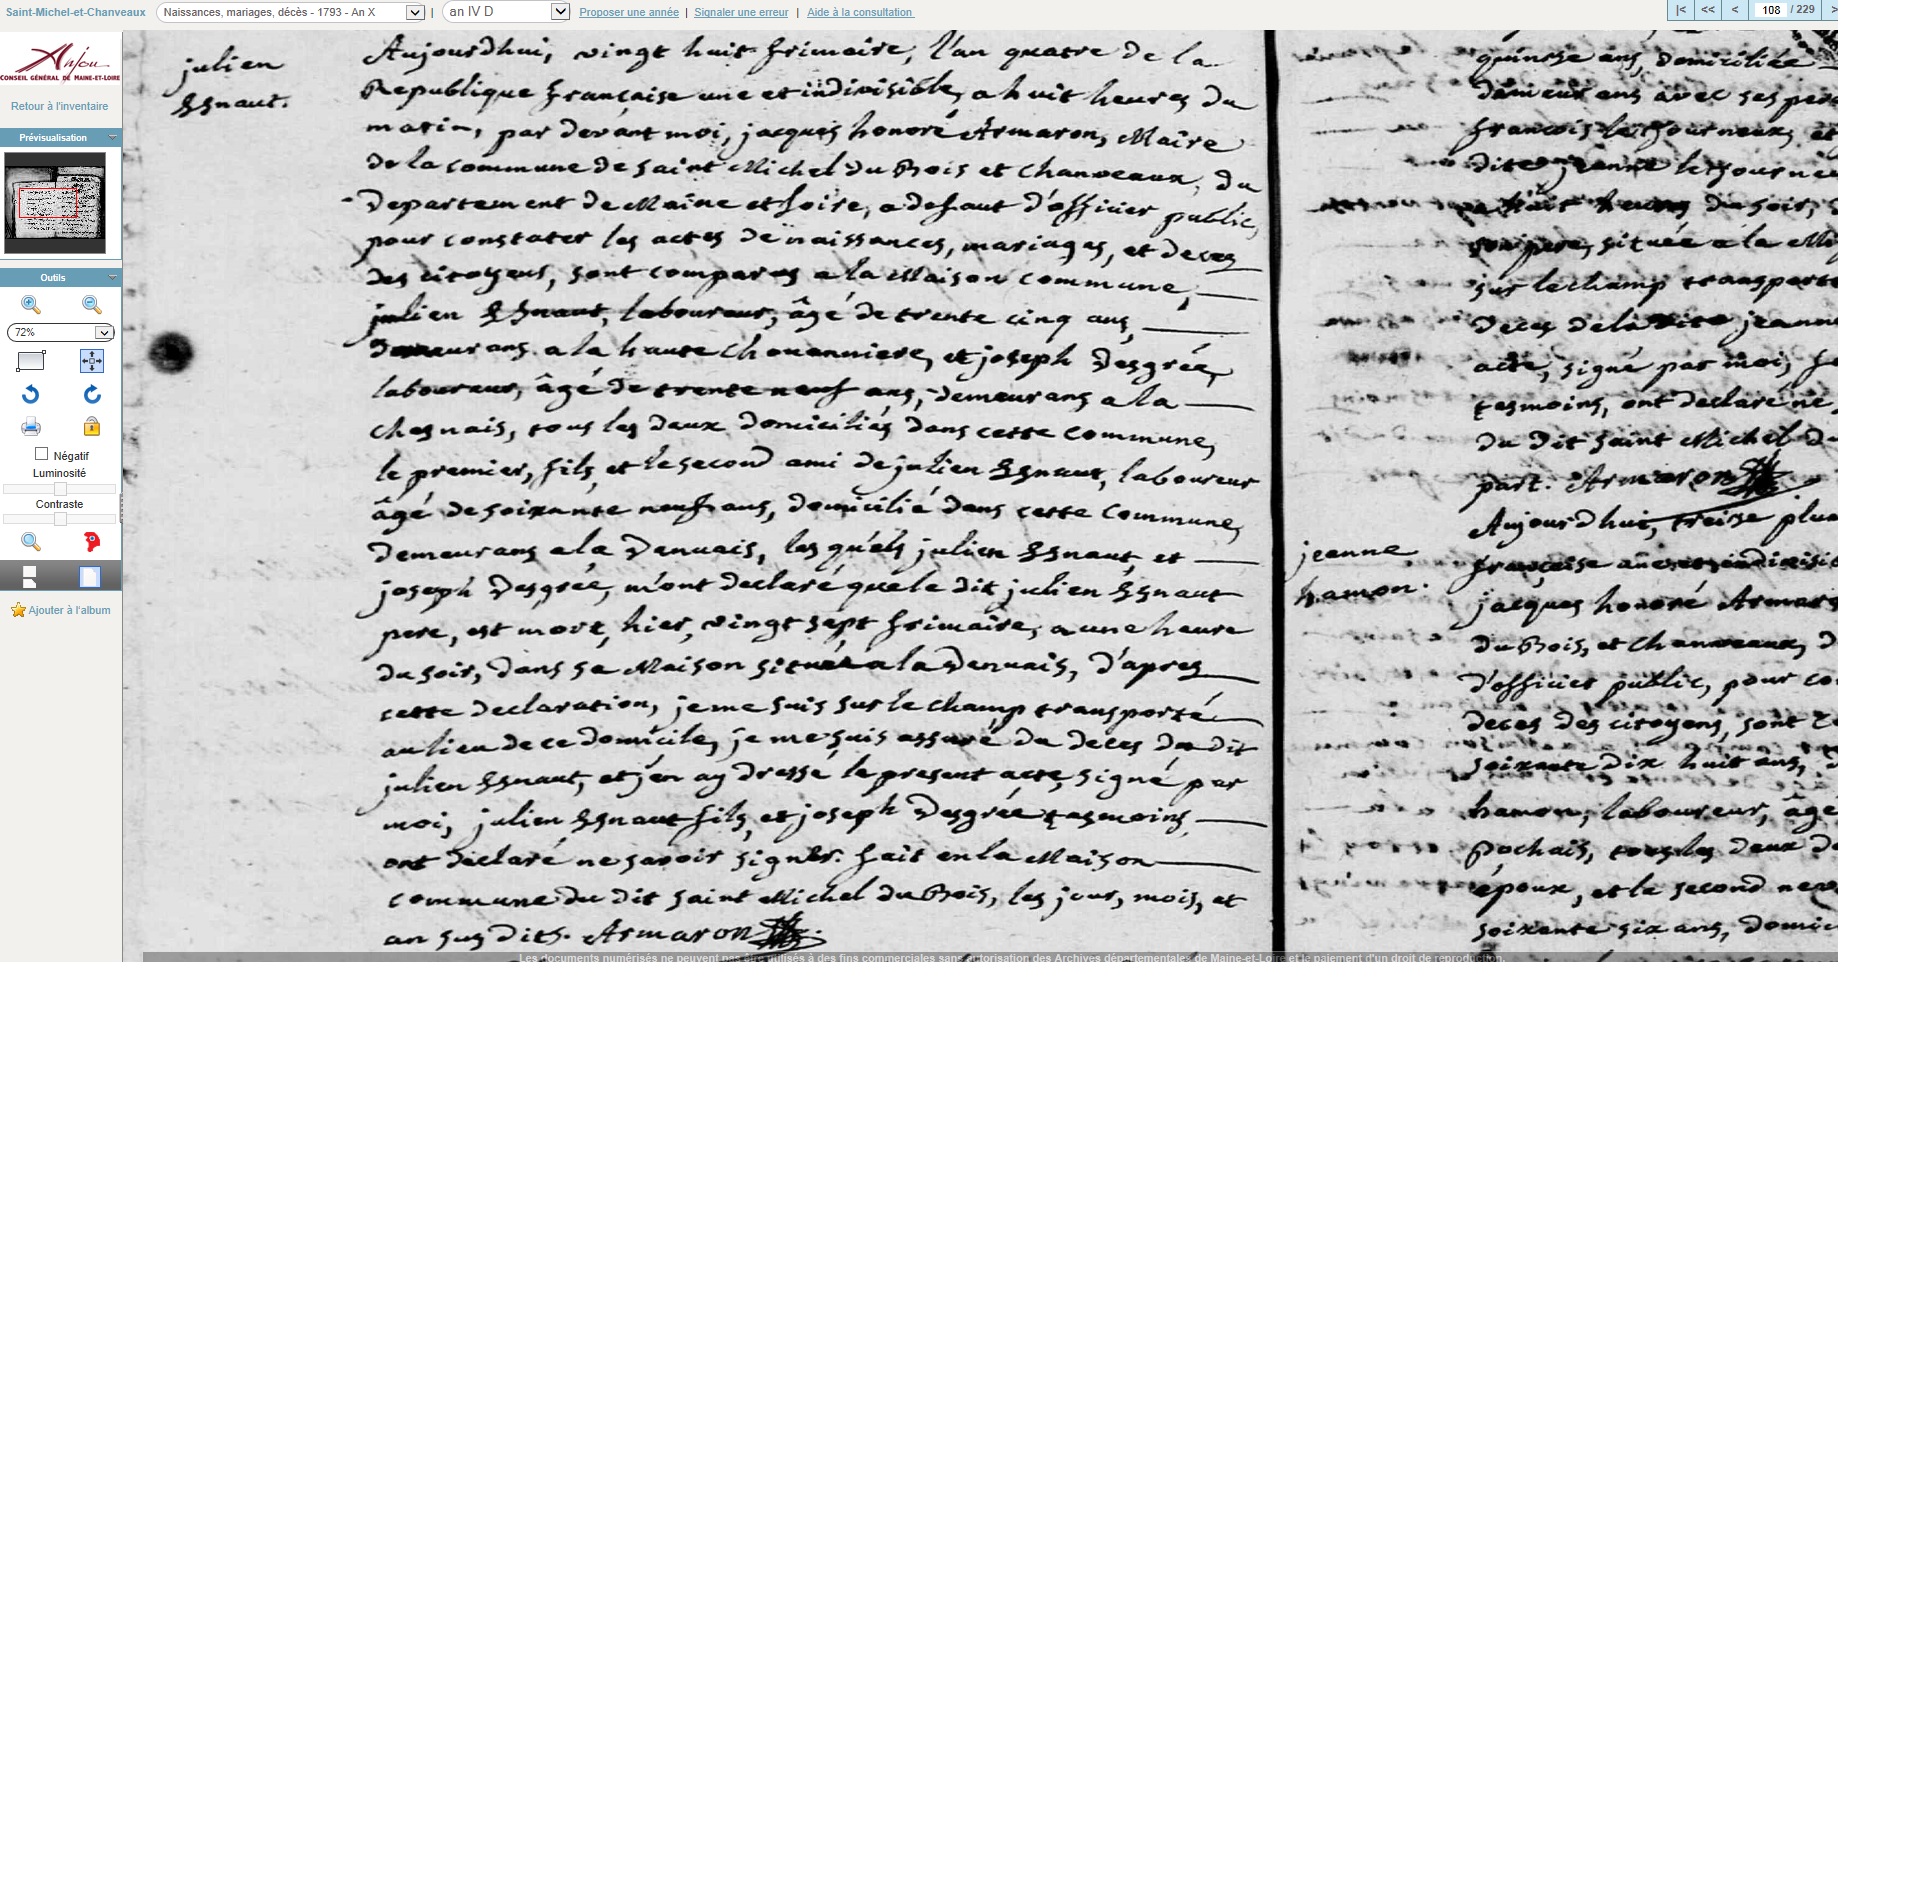 Saint-Michel-et-Chanveaux
Naissances, mariages, décès - 1793 - An X
|
an IV D
Proposer une année | Signaler une erreur | Aide à la consultation
|< << < 108 / 229 >
Anjou
CONSEIL GÉNÉRAL DE MAINE-ET-LOIRE
Retour à l'inventaire
Prévisualisation
Outils
72%
Négatif
Luminosité
Contraste
Ajouter à l'album
julien
Esnaut.
Aujourdhui, vingt huit frimaire, l'an quatre de la
Republique française une et indivisible, a huit heures du
matin, par devant moi, jacques honoré Armaron, Maire
de la commune de saint Michel du Bois et Chanveaux, du
Departement de Maine et Loire, a defaut d'officier public,
pour constater les actes de naissances, mariages, et deces
des citoyens, sont comparus a la Maison commune,
julien Esnaut, laboureur, âgé de trente cinq ans,
demeurans a la haute Chouanniere, et joseph Desgrée,
laboureur, âgé de trente neuf ans, demeurans a la
chesnais, tous les deux domiciliés dans cette commune,
le premier, fils, et le second ami de julien Esnaut, laboureur
âgé de soixante neuf ans, domicilié dans cette commune,
demeurans a la Denuais, les quels julien Esnaut, et
joseph Desgrée, m'ont declaré que le dit julien Esnaut
pere, est mort, hier, vingt sept frimaire, a une heure
du soir, dans sa Maison située a la Denuais, d'apres
cette declaration, je me suis sur le champ transporté
au lieu de ce domicile, je me suis assuré du deces du dit
julien Esnaut, et j'en ay dressé le present acte, signé par
moi, julien Esnaut fils, et joseph Desgrée tesmoins
ont declaré ne savoir signer. fait en la Maison
commune du dit saint Michel du Bois, les jour, mois, et
an sus dits. Armaron
quinsse ans, domiciliée
demeurans avec ses pere
francois le tourneux, et
dite jeanne le tourne
du soir,
son pere, située a la Mi
sur le champ transporté
deces de la dite jeanne
acte, signé par moi, fr
tesmoins, ont declaré ne
du dit saint Michel du
part. Armaron
jeanne
hamon.
Aujourdhui, treise pluv
française une et indivisi
jacques honoré Armaro
du Bois, et Chanveaux, d
d'officier public, pour co
deces des citoyens, sont c
soixante dix huit ans, d
hamon, laboureur, âgé
pochais, tous les deux do
époux, et le second neve
soixante six ans, domic
Les documents numérisés ne peuvent pas être utilisés à des fins commerciales sans autorisation des Archives départementales de Maine-et-Loire et le paiement d'un droit de reproduction.